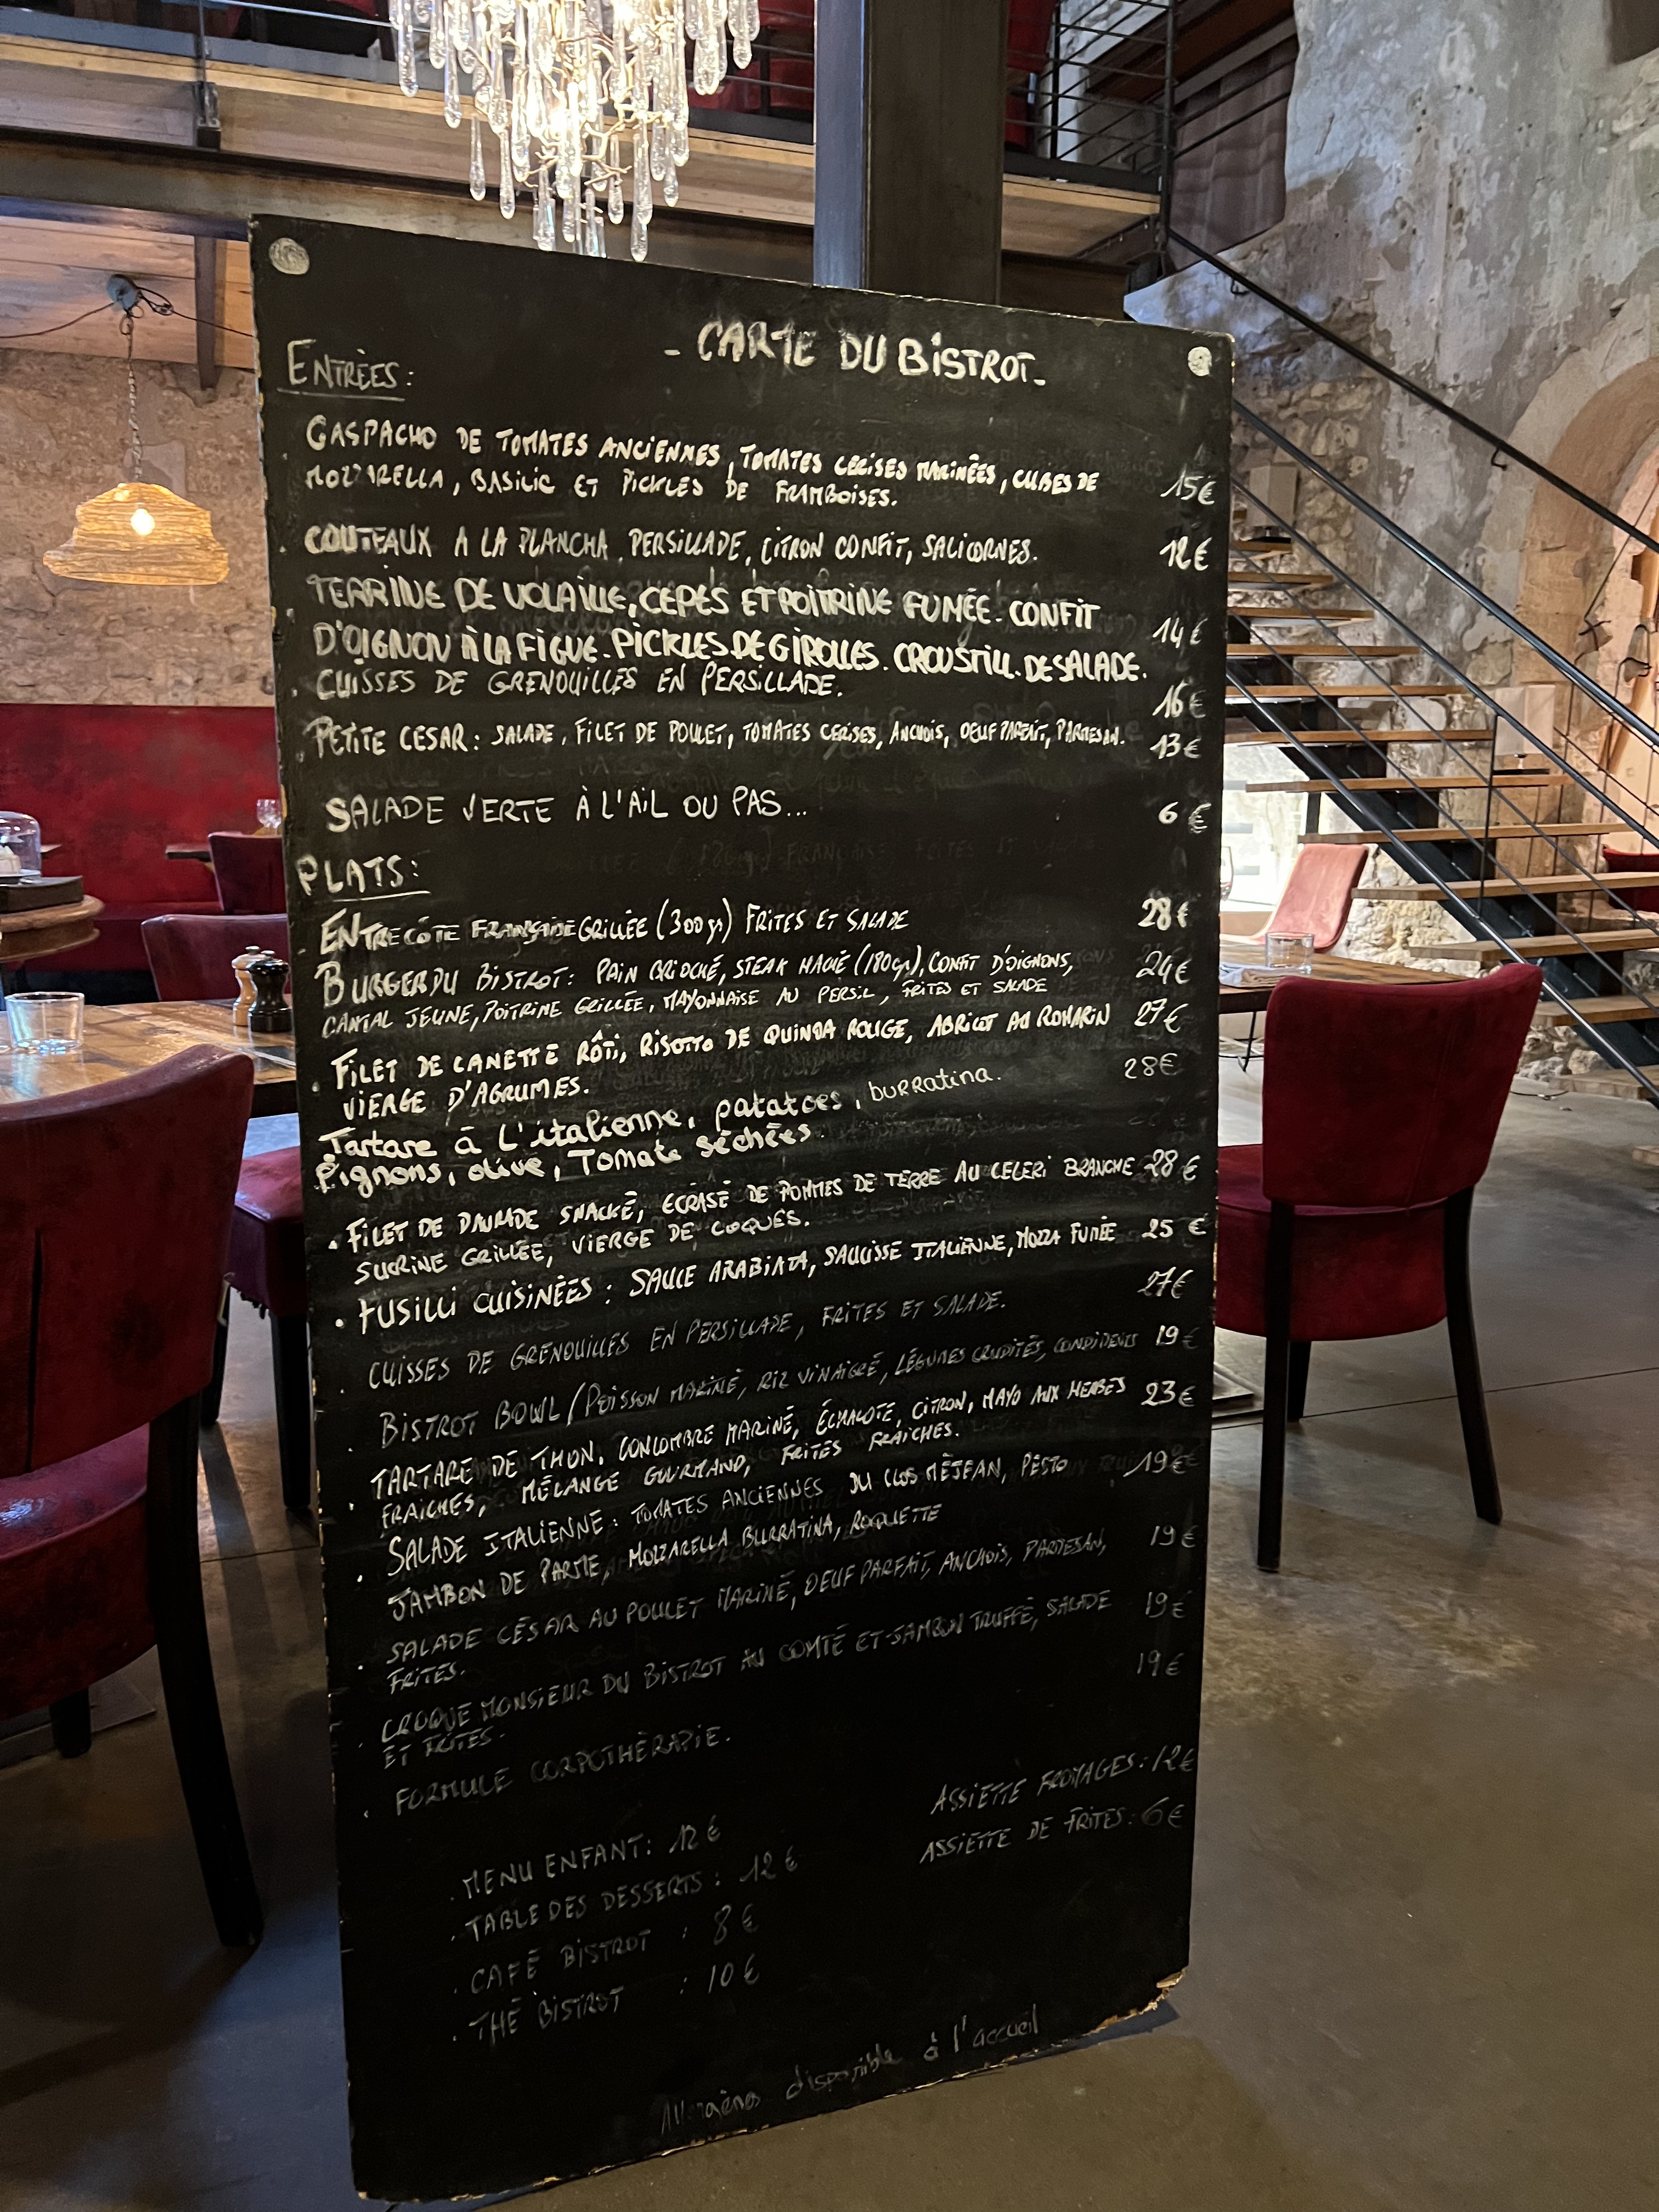 - CARTE DU BISTROT -
ENTRÈES :
GASPACHO DE TOMATES ANCIENNES, TOMATES CERISES MARINÉES, CUBES DE
MOZZARELLA, BASILIC ET PICKLES DE FRAMBOISES. 15€
COUTEAUX A LA PLANCHA, PERSILLADE, CITRON CONFIT, SALICORNES. 12€
TERRINE DE VOLAILLE, CEPES ET POITRINE FUMÉE. CONFIT
D'OIGNON À LA FIGUE. PICKLES DE GIROLLES. CROUSTILL. DE SALADE. 14€
. CUISSES DE GRENOUILLES EN PERSILLADE. 16€
. PETITE CESAR : SALADE, FILET DE POULET, TOMATES CERISES, ANCHOIS, OEUF PARFAIT, PARMESAN. 13€
SALADE VERTE À L'AIL OU PAS... 6€
PLATS :
- ENTRECÔTE FRANÇAISE GRILLÉE (300gr) FRITES ET SALADE 28€
BURGER DU BISTROT : PAIN BRIOCHÉ, STEAK HACHÉ (180gr), CONFIT D'OIGNONS, 24€
CANTAL JEUNE, POITRINE GRILLÉE, MAYONNAISE AU PERSIL, FRITES ET SALADE
. FILET DE CANETTE RÔTI, RISOTTO DE QUINOA ROUGE, ABRICOT AU ROMARIN 27€
VIERGE D'AGRUMES.
Tartare à L'italienne, patatoes, burratina. 28€
Pignons, olive, Tomate séchées.
. FILET DE DAURADE SNACKÉ, ECRASÉ DE POMMES DE TERRE AU CELERI BRANCHE 28€
SUCRINE GRILLÉE, VIERGE DE COQUES.
. FUSILLI CUISINÉES : SAUCE ARABIATA, SAUCISSE ITALIENNE, MOZZA FUMÉE 25€
. CUISSES DE GRENOUILLES EN PERSILLADE, FRITES ET SALADE. 27€
. BISTROT BOWL / POISSON MARINÉ, RIZ VINAIGRÉ, LÉGUMES CRUDITÉS, CONDIMENTS 19€
. TARTARE DE THON, CONCOMBRE MARINÉ, ÉCHALOTE, CITRON, MAYO AUX HERBES 23€
FRAICHES, MÉLANGE GOURMAND, FRITES FRAICHES.
. SALADE ITALIENNE : TOMATES ANCIENNES DU CLOS MÉJEAN, PESTO 19€
JAMBON DE PARME, MOZZARELLA BURRATINA, ROQUETTE
. SALADE CÉSAR AU POULET MARINÉ, OEUF PARFAIT, ANCHOIS, PARMESAN, 19€
FRITES.
. CROQUE MONSIEUR DU BISTROT AU COMTÉ ET JAMBON TRUFFÉ, SALADE 19€
ET FRITES.
. FORMULE CORPOTHÉRAPIE. 19€
. MENU ENFANT : 12€
. TABLE DES DESSERTS : 12€
. CAFÉ BISTROT : 8€
. THÉ BISTROT : 10€
ASSIETTE FROMAGES : 12€
ASSIETTE DE FRITES : 6€
Allergènes disponible à l'accueil